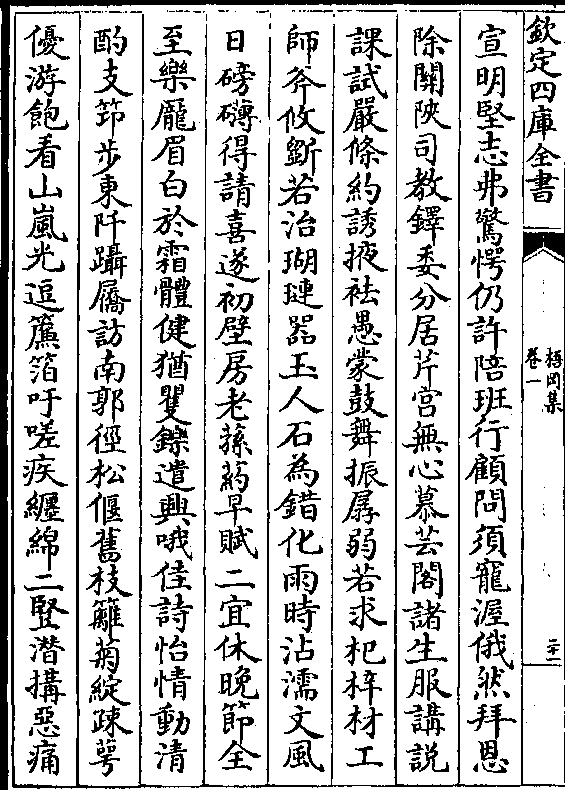 欽定四庫全書
梧岡集
卷一
二十一
宣明堅志弗驚愕仍許陪班行顧問須寵渥俄然拜恩
除關陜司教鐸委分居芹宫無心慕芸閣諸生服講説
課試嚴條約誘掖袪愚蒙鼓舞振孱弱若求杞梓材工
師斧攸斵若治瑚璉器玉人石為錯化雨時沾濡文風
日磅礴得請喜遂初壁房老蓀葯早賦二宜休晚節全
至樂龎眉白於霜體健猶矍鑠遣興哦佳詩怡情動清
酌支笻步東阡躡屩訪南郭徑松偃舊枝籬菊綻疎蕚
優游飽看山嵐光逗簾箔吁嗟疾纒綿二豎潜搆惡痛